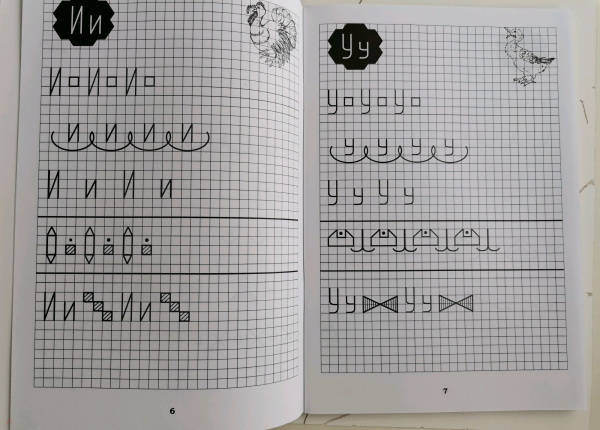 Ии
И И И
и и и и
И и И и
Ии Ии
6
Уу
У У У
у у у у
У у У у
Уу Уу
7